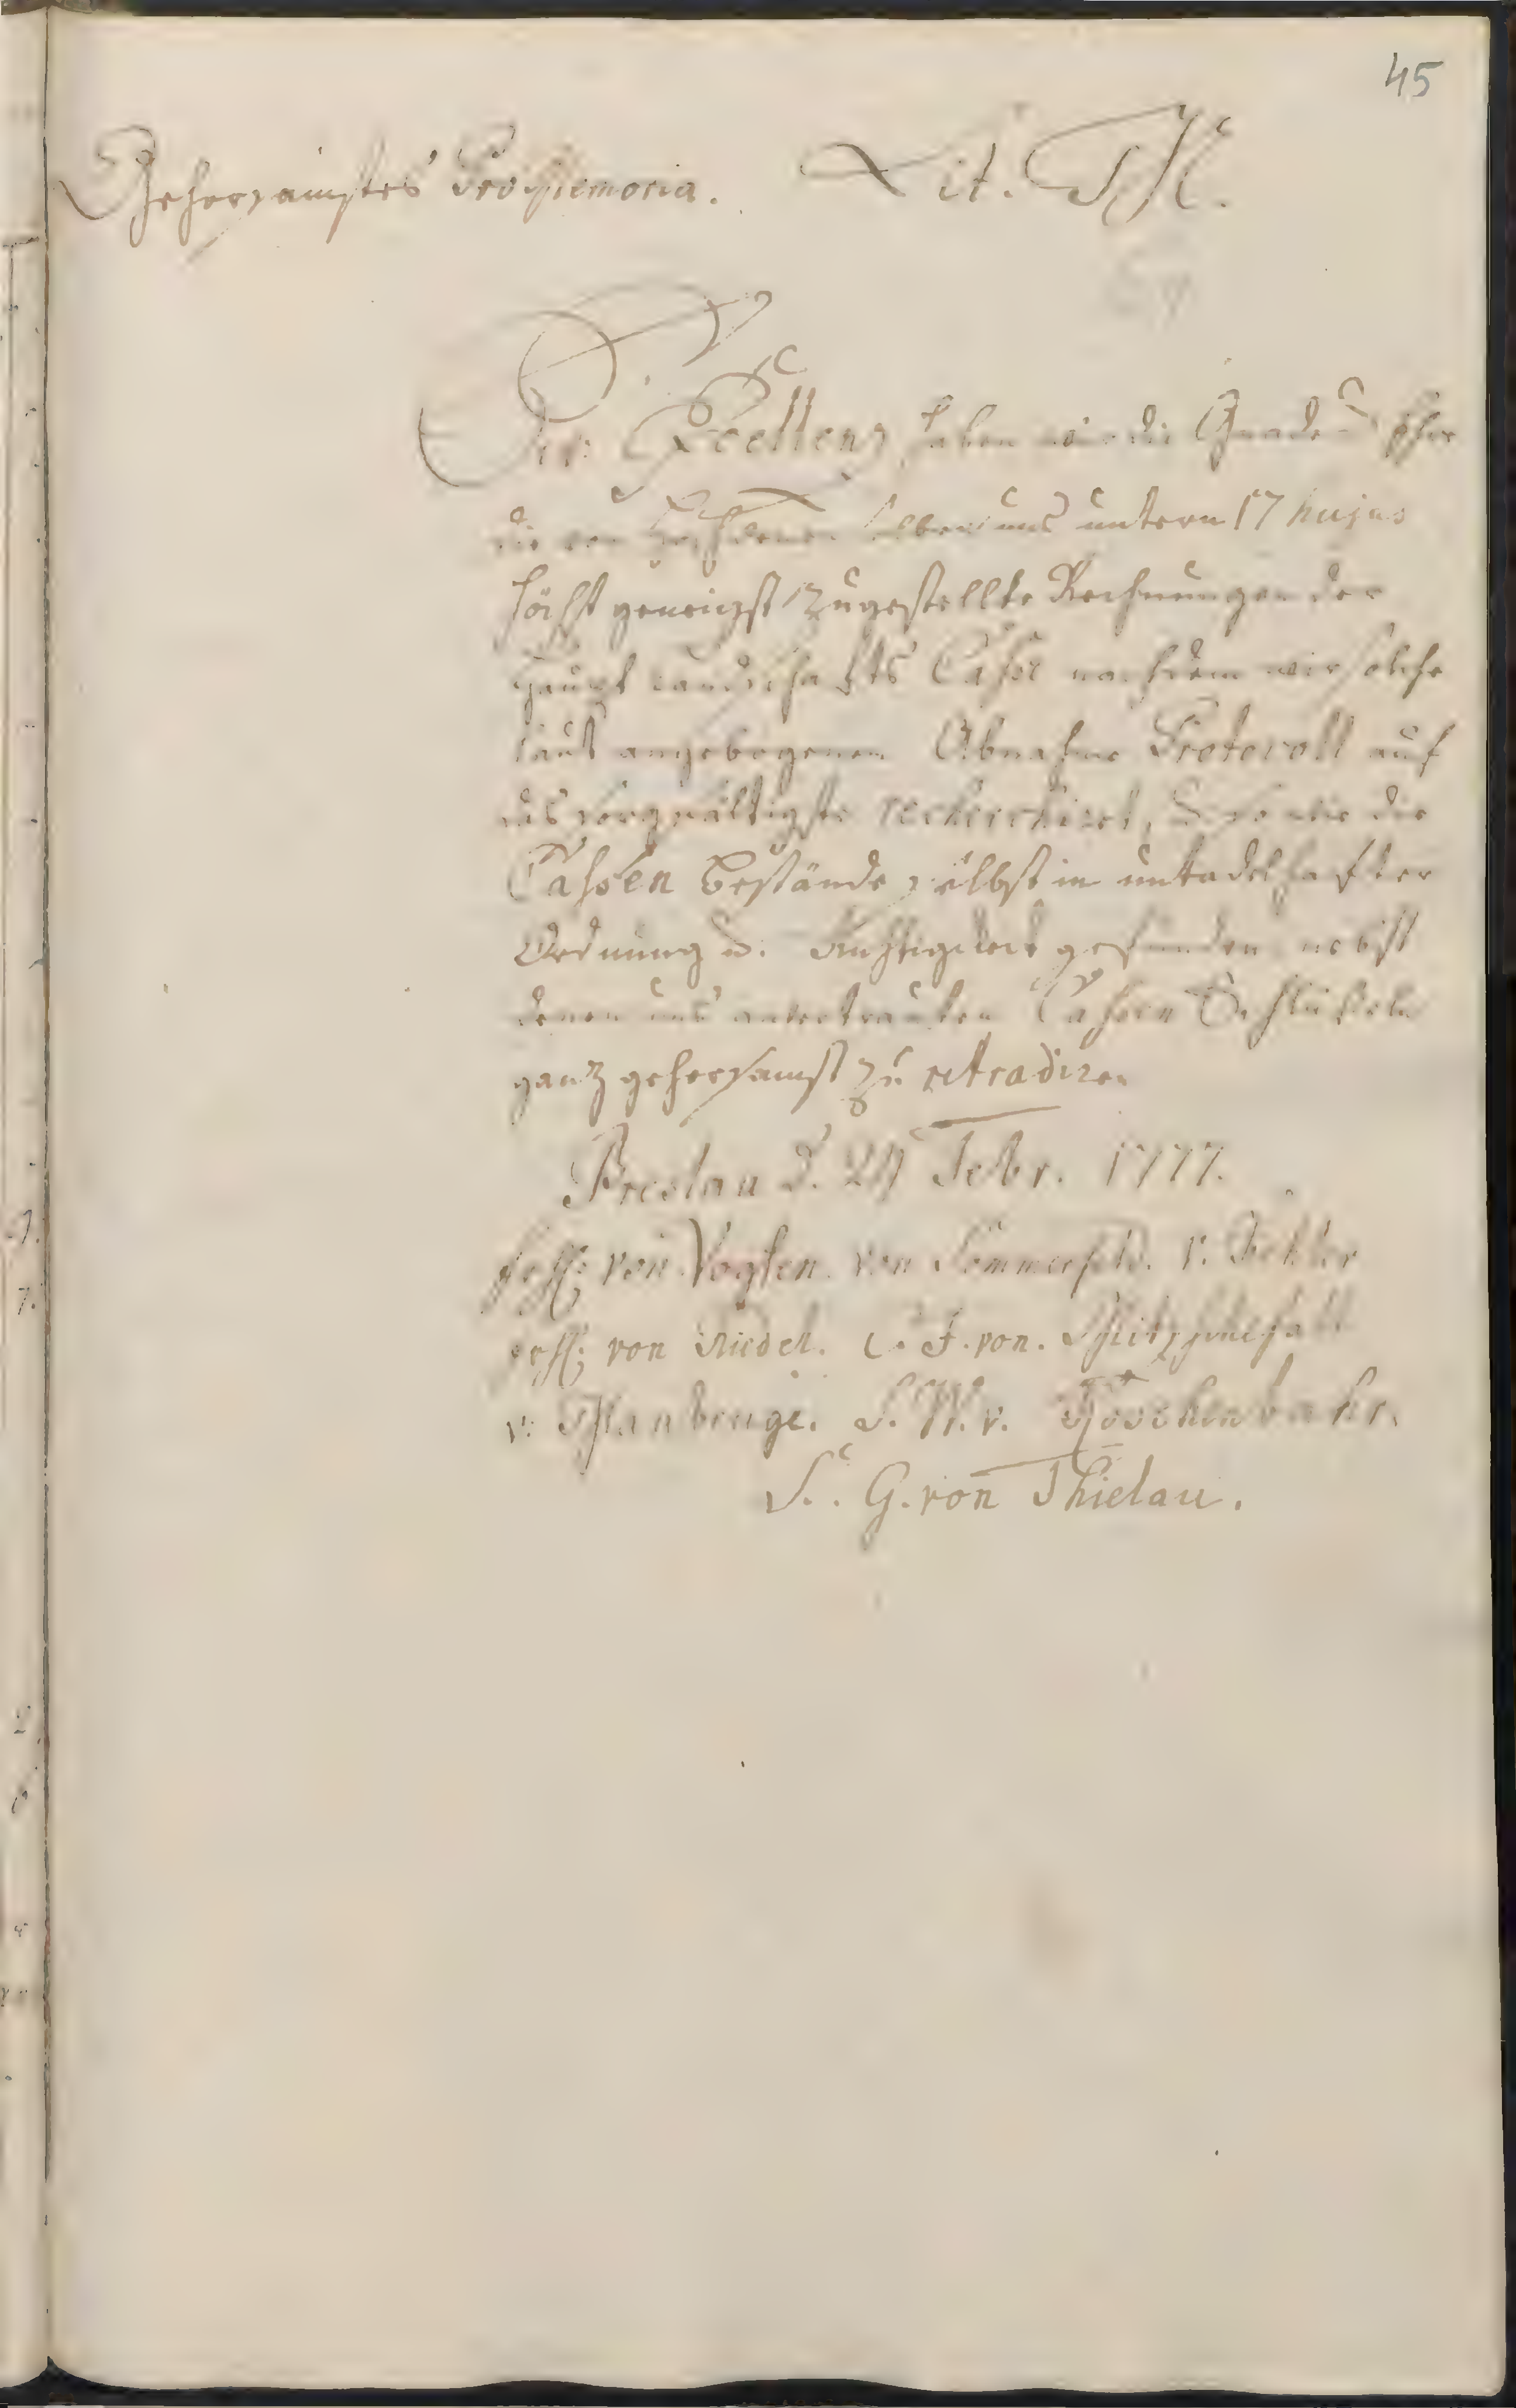 45
Gehorsamstes Promemoria. Lit. H.
Ihr: Excellenz haben wir die Gnade
die von uns untern 17 hujus
höchst geneigst zugestellte Rechnungen der
Haupt Landschafts Casse nachdem wir solche
laut angebogenen Abnahme Protocoll auf
das sorgfältigste recherchiret, so wie die
Cassen Bestände selbst in untadelhafter
Ordnung u. Richtigkeit gefunden nebst
denen uns anvertrauten Cassen Schlüßeln
gantz gehorsamst zu retradiren
Breslau d. Febr. 1777.
von Vogten. von Sommerfeld. v.
von Riedel. C. F. von.
v: S. W. v.
S. G. von Thielau.